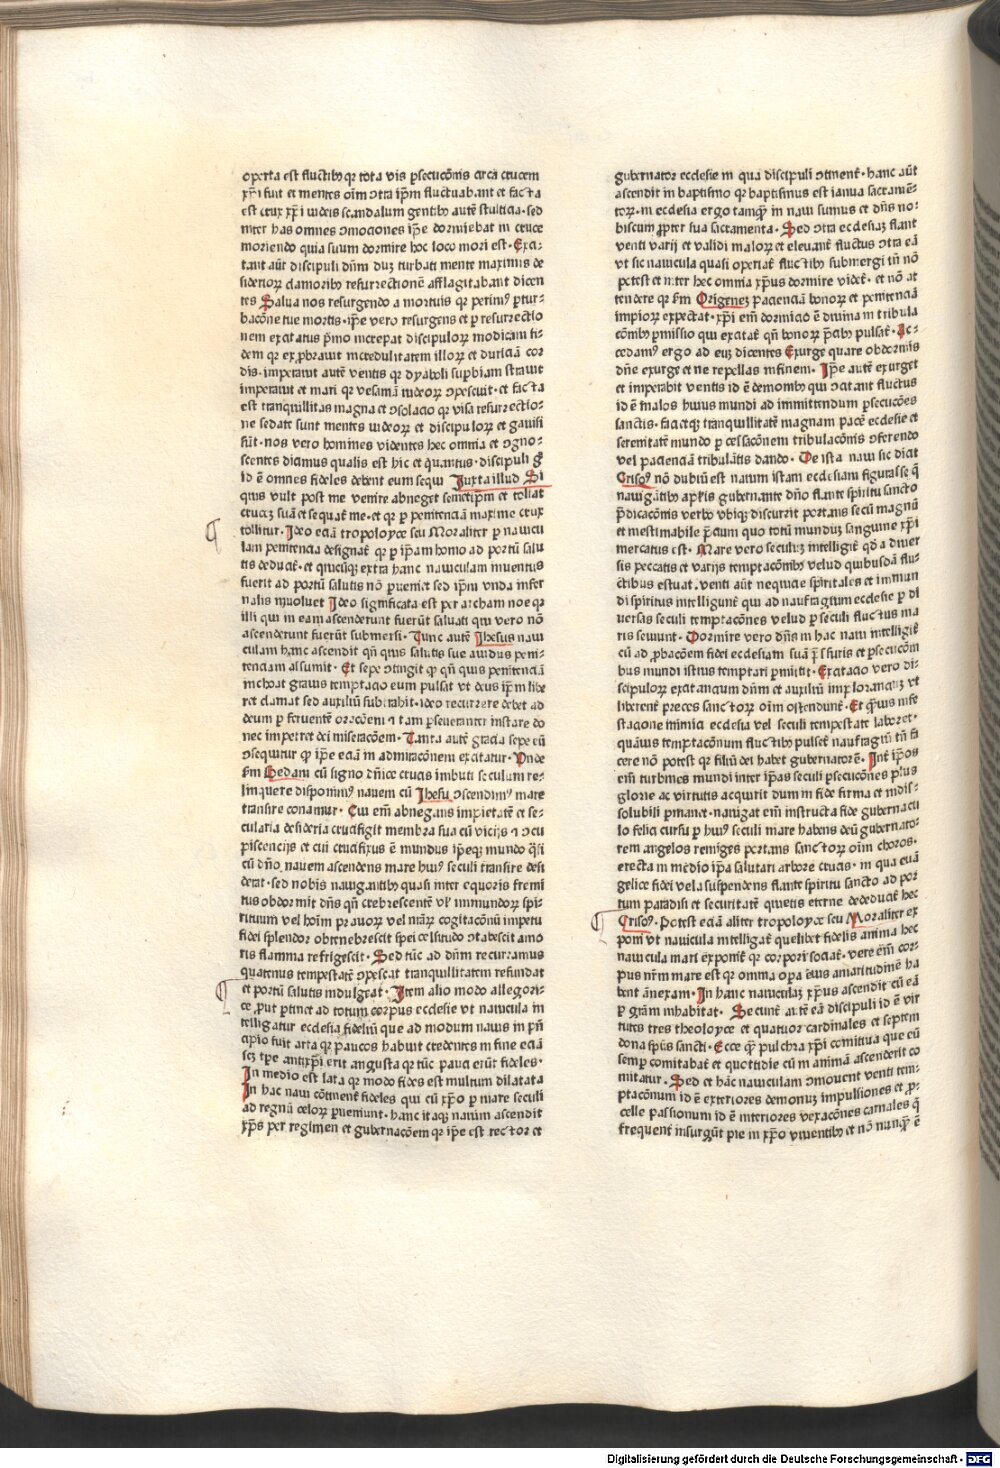 operta est fluctibꝰ qꝛ tota vis ꝑsecucōnis circa crucem
xp̄i fuit et mentes oīm ɔtra ip̄m fluctuabant et facta
est crux xp̄i iudeis scandalum gentibꝰ autē stulticia· sed
inter has omnes ɔmociones ip̄e dormiebat in cruce
moriendo quia suum dormire hoc loco mori est· Exci-
tant aūt discipuli dn̄m duꝫ turbati mente maximis de
siderioꝝ clamoribꝰ resurrectionē afflagitabant dicen
tes Salua nos resurgendo a mortuis qꝛ perimꝰ ꝑtur-
bacōne tue mortis· ip̄e vero resurgens et ꝑ resurrectio
nem excitatus pͥmo increpat discipuloꝝ modicam fi-
dem qꝛ exprobrauit incredulitatem illoꝝ et duriciā cor
dis· imperauit autē ventis qꝛ dyaboli suꝑbiam strauit
imperauit et mari qꝛ vesaniā iudeoꝝ ɔpescuit· et facta
est tranquillitas magna et ɔsolacio qꝛ visa resurrectio-
ne sedate sunt mentes iudeoꝝ et discipuloꝝ et gauisi
sūt· nos vero homines videntes hec omnia et ɔgno-
scentes dicimus qualis est hic et quantus· discipuli gͦ
id ē omnes fideles debent eum sequi Juxta illud Si
quis vult post me venire abneget semetip̄m et tollat
crucꝫ suā et sequat᷑ me· et qꝛ ꝑ penitenciā maxime crux
tollitur· Ideo eciā tropoloyce seu Moraliter ꝑ nauicu
lam penitencia designat᷑ qꝛ ꝑ ip̄am homo ad portū salu
tis deducit᷑· et quicūqꝫ extra hanc nauiculam inuentus
fuerit ad portū salutis nō ꝑueniet sed ip̄m vnda infer
nalis inuoluet Ideo significata est per archam noe qꝛ
illi qui in eam ascenderunt fuerūt saluati qui vero nō
ascenderunt fuerūt submersi· Tunc autē Jhesus naui
culam hanc ascendit qn̄ quis salutis sue auidus peni-
tenciam assumit· Et sepe ɔtingit ꝙ qn̄ quis penitenciā
inchoat grauis temptacio eum pulsat vt deus ip̄m libe
ret clamat sed auxiliū subtrahit· ideo recurrere debet ad
deum ꝑ feruentē oracōem ⁊ tam ꝑseueranter instare do
nec imperret dei miseracōem· Tanta autē gracia sepe eū
ɔsequitur ꝙ ip̄e eciā in admiracōnem excitatur· Vnde
scd̄m Bedam cū signo dn̄ice crucis imbuti seculum re-
linquere disponimꝰ nauem cū Jhesu ɔscendimꝰ mare
transire conamur· Cui em̄ abnegans impietatē et se-
cularia desideria crucifigit membra sua cū vicijs ⁊ ɔcu
piscencijs et cui crucifixus ē mundus ip̄eqꝫ mundo qͣsi
cū dn̄o nauem ascendens mare huiꝰ seculi transire desi
derat· sed nobis nauigantibꝰ quasi inter equoris fremi
tus obdormit dn̄s qn̄ crebrescente vl̓ immundoꝝ spi-
rituum vel hoīm prauoꝝ vel nr̄aꝝ cogitacōnū impetu
fidei splendor obtenebrescit spei celsitudo ɔtabescit amo
ris flamma refrigescit· Sed tūc ad dn̄m recurramus
quatenus tempestatē ɔpescat tranquillitatem refundat
et portū salutis indulgeat· Item alio modo allegori-
ce ꝓut ꝑtinet ad totum corpus ecclesie vt nauicula in
telligatur ecclesia fideliū que ad modum nauis in pͥn
cipio fuit arta qꝛ paucos habuit credentes in fine eciā
scꝫ tp̄e antixp̄i erit angusta qꝛ tūc pauci erūt fideles·
In medio est lata qꝛ modo fides est multum dilatata
In hac naui cōtinent᷑ fideles qui cū xp̄o ꝑ mare seculi
ad regnū celoꝝ ꝑueniunt· hanc itaqꝫ nauim ascendit
xp̄s per regimen et gubernacōem qꝛ ip̄e est rector et
gubernator ecclesie in qua discipuli ɔtinent᷑· hanc aūt
ascendit in baptismo qꝛ baptismus est ianua sacramē-
toꝝ· in ecclesia ergo tamqͣꝫ in naui sumus et dn̄s no-
biscum ꝓpter sua sacramenta· Sed ɔtra ecclesiaꝫ flant
venti varij et validi maloꝝ et eleuant᷑ fluctus ɔtra eā
vt sic nauicula quasi operiat᷑ fluctibꝰ submergi tn̄ nō
potest et inter hec omnia xp̄us dormire videt᷑· et nō at
tendere qꝛ scd̄m Origeneꝫ pacienciā bonoꝝ et penitenciā
impioꝝ expectat· xp̄i em̄ dormicio ē diuina in tribula
cōnibꝰ ꝑmissio qui excitat᷑ qn̄ bonoꝝ pͥcibꝰ pulsat᷑· Ac-
cedamꝰ ergo ad euꝫ dicentes Exurge quare obdormis
dn̄e exurge et ne repellas in finem· Ip̄e autē exurget
et imperabit ventis id ē demonibꝰ qui ɔcitant fluctus
id ē malos huius mundi ad immittendum ꝑsecucōes
sanctis· facietqꝫ tranquillitatē magnam pacē ecclesie et
serenitatē mundo ꝑ cessacōnem tribulacōnis ɔferendo
vel pacienciā tribulātis dando· De ista naui sic dicit
Crisoꝰ nō dubiū est nauim istam ecclesiam figurasse qͣ
nauigātibꝰ apl̓is gubernante dn̄o flante spiritu sancto
p̄dicacōnis verbo vbiqꝫ discurrit portans secū magnū
et inestimabile p̄cium quo totū munduꝫ sanguine xp̄i
mercatus est· Mare vero seculuꝫ intelligit᷑ qd̓ a diuer
sis peccatis et varijs temptacōnibꝰ velud quibusdā flu-
ctibus estuat· venti aūt nequicie spiritales et immun
di spiritus intelligunt᷑ qui ad naufragium ecclesie ꝑ di
uersas seculi temptacōnes velud ꝑ seculi fluctus ma
ris seuiunt· Dormire vero dn̄s in hac naui intelligit᷑
cū ad ꝓbacōem fidei ecclesiam suā p̄ssuris et ꝑsecucōni
bus mundi istius temptari ꝑmittit· Excitacio vero di-
scipuloꝝ excitanciū dn̄m et auxiliū imploranciuꝫ vt
liberent᷑ preces sanctoꝝ oīm ostendunt᷑· Et qͣꝫuis infe
stacione inimici ecclesia vel seculi tempestate laboret·
quāuis temptacōnum fluctibꝰ pulset᷑ naufragiū tn̄ fa
cere nō potest qꝛ filiū dei habet gubernatorē· Int᷑ ip̄os
em̄ turbines mundi inter ip̄as seculi ꝑsecucōnes plus
glorie ac virtutis acquirit dum in fide firma et indis-
solubili ꝑmanet· nauigat em̄ instructa fide gubernacu
lo felici cursu ꝑ huiꝰ seculi mare habens deū gubernato-
rem angelos remiges portans sanctoꝝ oīm choros·
erecta in medio ip̄a salutari arbore crucis· in qua euā
gelice fidei vela suspendens flante spiritu sancto ad por
tum paradisi et securitatē quietis eterne deducit᷑ hec
Crisoꝰ· Potest eciā aliter tropoloyce seu Moraliter ex
poni vt nauicula intelligat᷑ quelibet fidelis anima hec
nauicula mari exponit᷑ qꝛ corpori sociat᷑· vere em̄ cor-
pus nr̄m mare est qꝛ omnia oꝑa eius amaritudinē ha
bent ānexam· In hanc nauiculaꝫ xp̄us ascendit cū eā
ꝑ gr̄am inhabitat· Secunt᷑ autē eā discipuli id ē vir
tutes tres theoloyce et quatuor cardinales et septem
dona sp̄us sancti· Ecce qͣꝫ pulchra xp̄i comitiua que eū
semꝑ comitabat᷑ et quottidie cū in animā ascenderit co
mitatur· Sed et hāc nauiculam ɔmouent venti tem-
ptacōnum id ē exteriores demonuꝫ impulsiones et ꝓ-
celle passionum id ē interiores vexacōnes carnales qͣ
frequent᷑ insurgūt pie in xp̄o viuentibꝰ et nō nunqͣꝫ ē
Digitalisierung gefördert durch die Deutsche Forschungsgemeinschaft - DFG